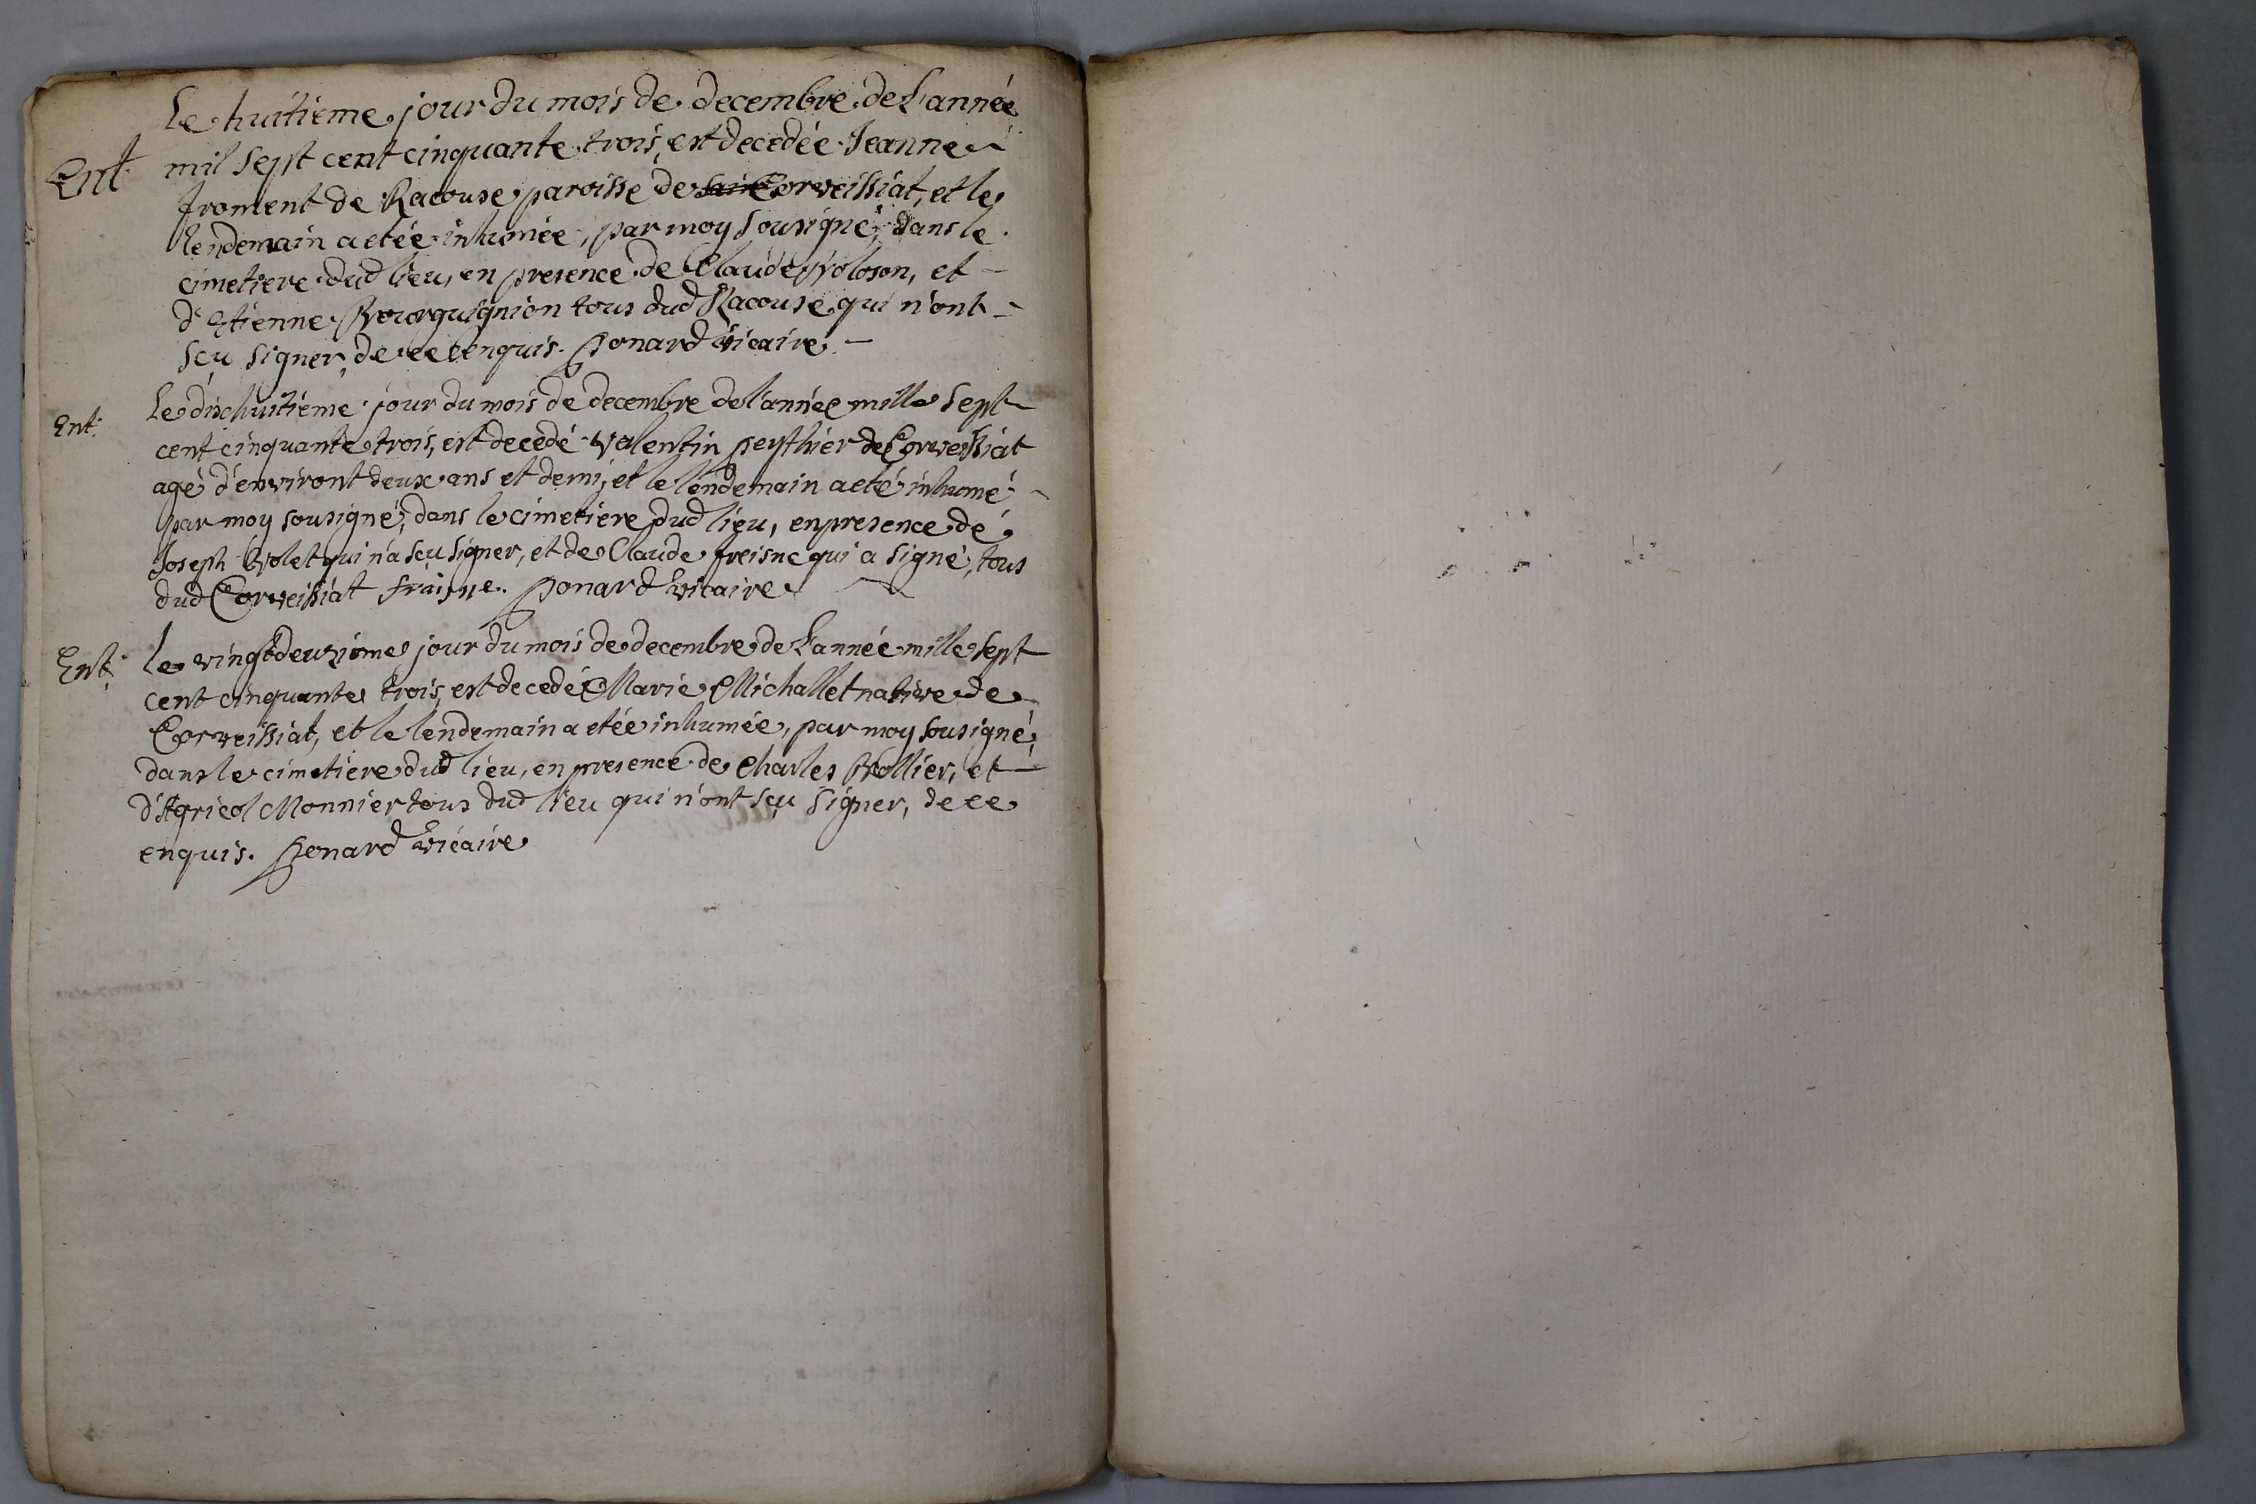 Le huitieme jour du mois de decembre de l'année
Ent. mil sept cent cinquante trois, est decedée Jeanne
froment de Racouse paroisse de Corveissiat, et le
lendemain a etée inhumée, par moy sousigné, dans le
cimetiere dud lieu, en presence de Claude Voloson, et
d'Etienne Bourguignion tous dud Racouse qui n'ont
sçu signer, de ce enquis. Ponard vicaire
Ent. Le dixhuitiéme jour du mois de decembre de l'année mille sept
cent cinquante trois, est decedé valentin peysthier de Corveissiat
agé d'environt deux ans et demi, et le lendemain a eté inhumé
par moy sousigné, dans le cimetiere dud lieu, en presence de
Joseph volet qui n'a sçu signer, et de Claude freisne qui a signé, tous
dud Corveissiat fraisne. Ponard vicaire
Ent. le vingtdeuxiéme jour du mois de decembre de l'année mille sept
cent cinquante trois, est decedé Marie Michallet native de
Corveissiat, et le lendemain a etée inhumée, par moy sousigné,
dans le cimetiere dud lieu, en presence de Charles et
d'Agricol Monnier tous dud lieu qui n'ont sçu signer, de ce
enquis. Ponard vicaire